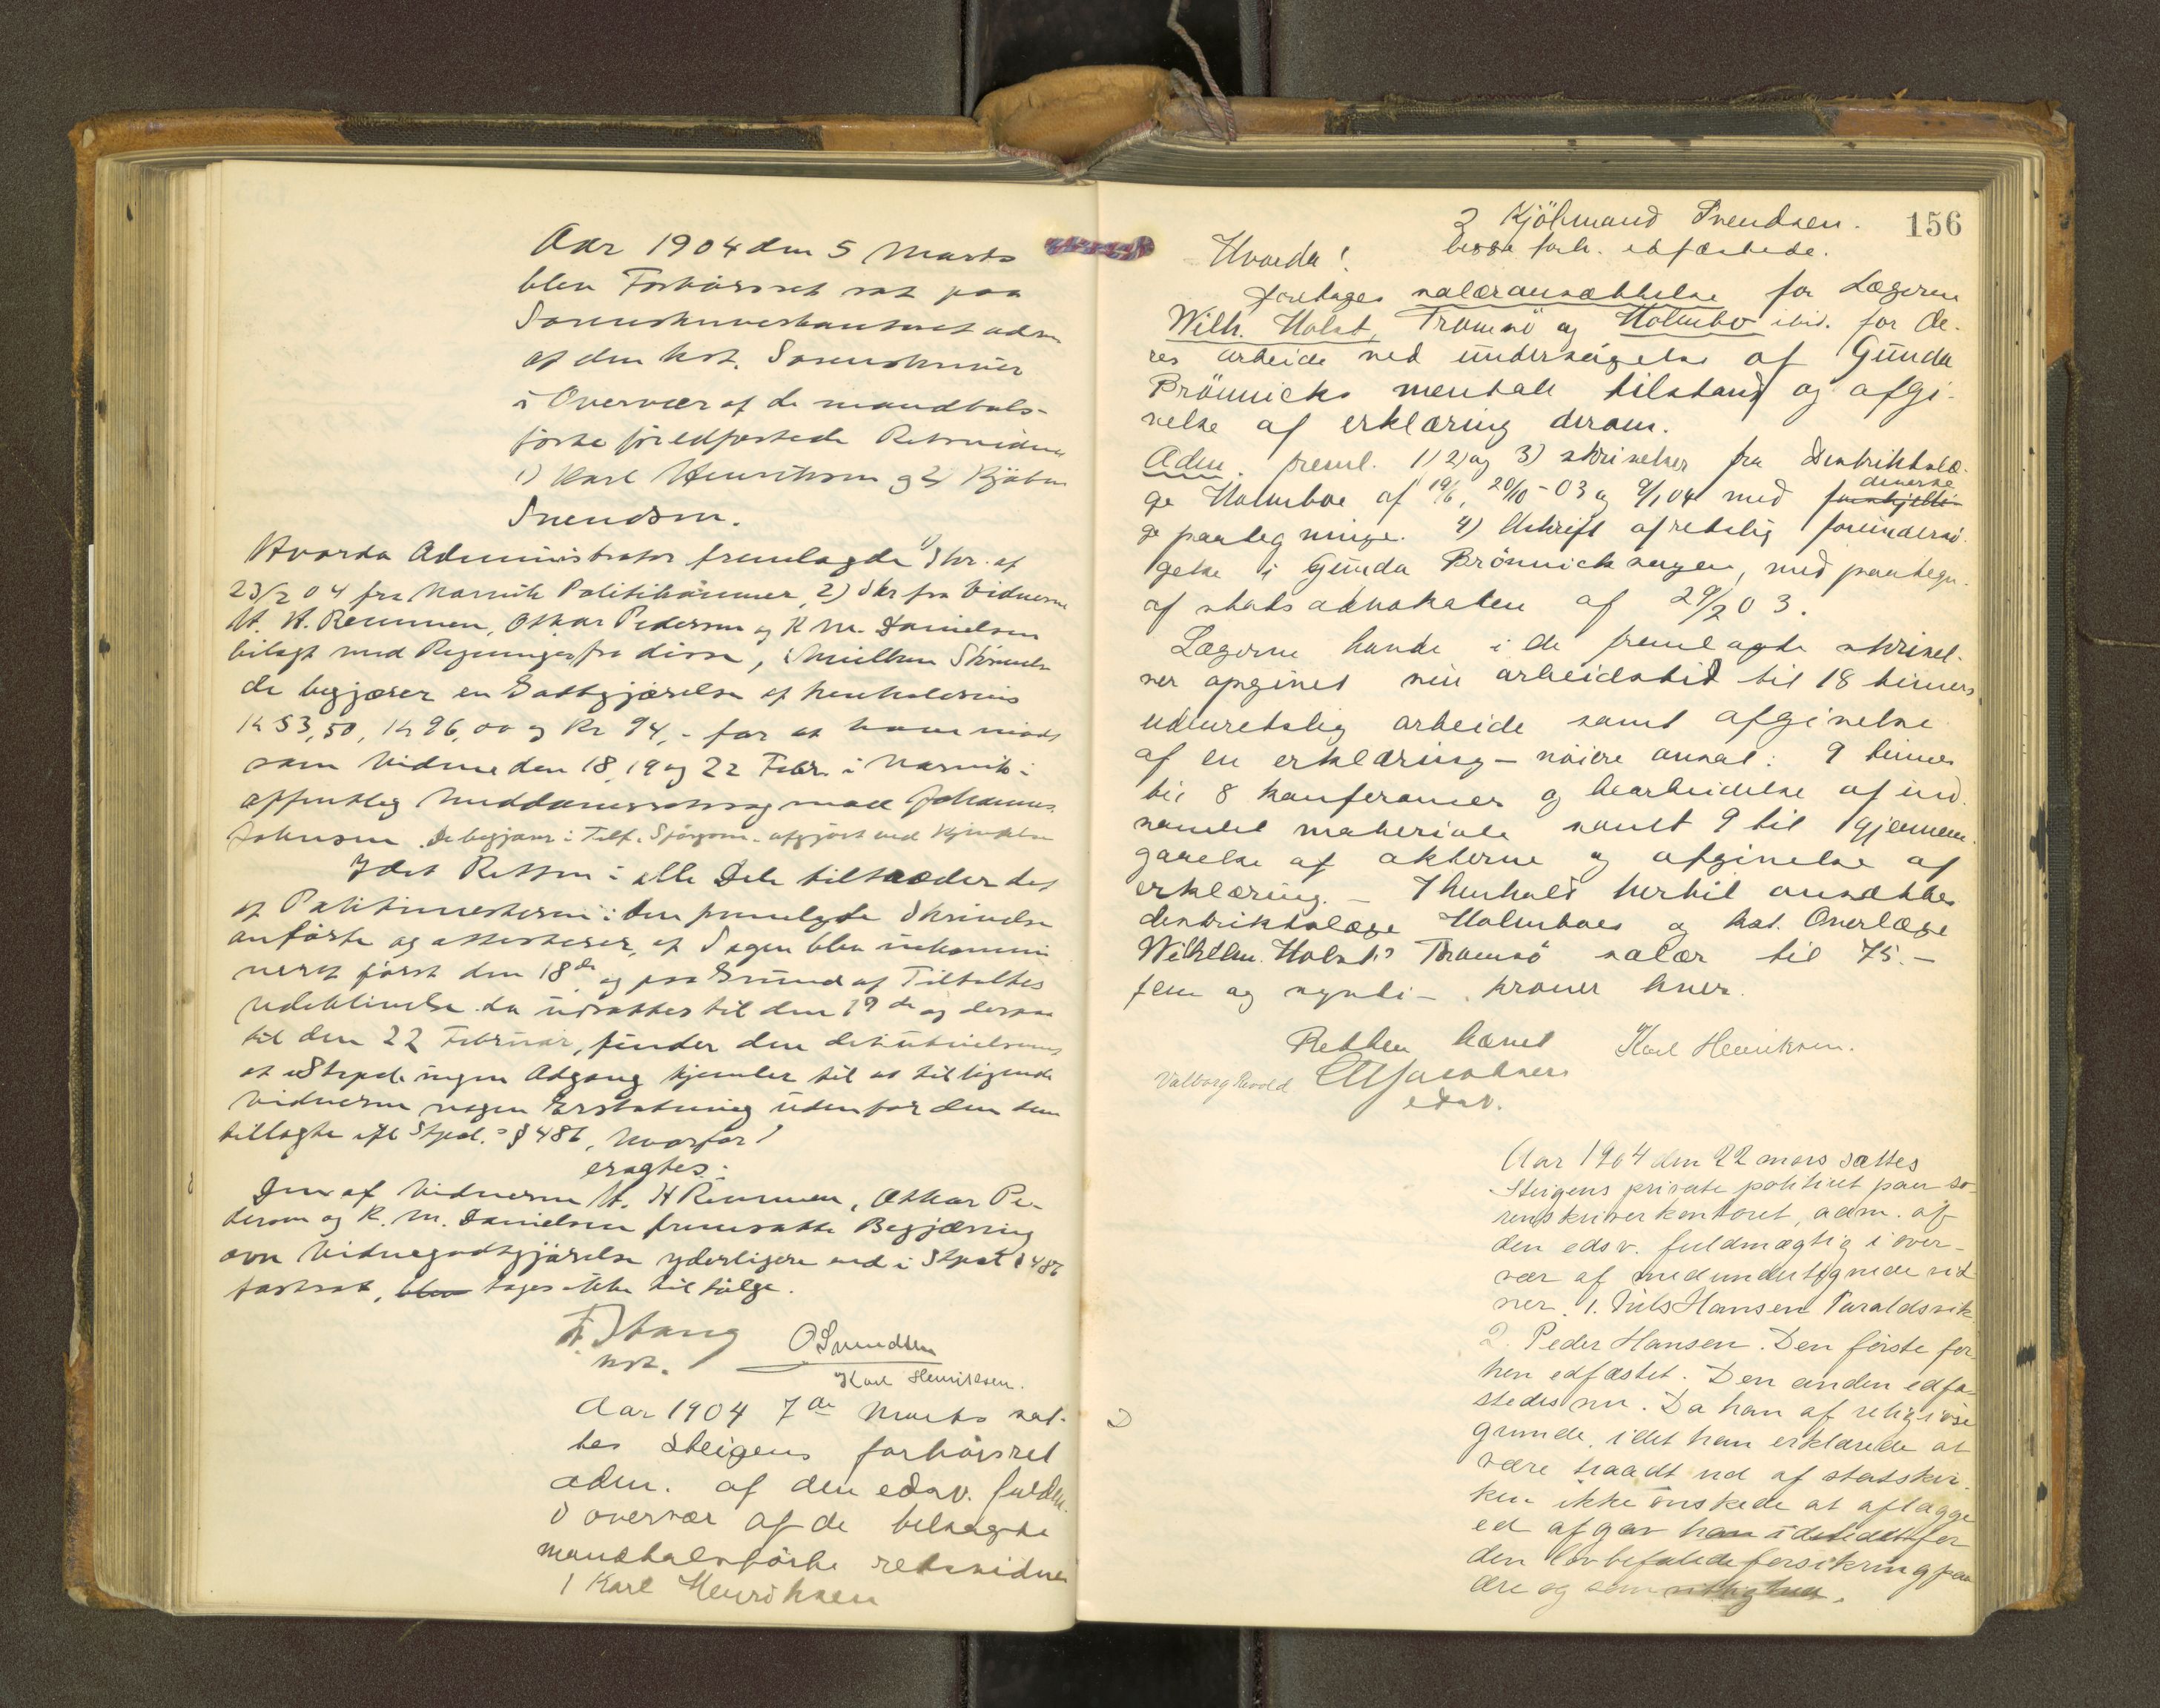 Aar 1904 den 5 Marts
blev Forhørsret sat paa
Sorenskriverkontoret adm
af den kst. Sorenskriver
i Overvær af de mandtals-
førte før edfæstede Retsvidner
1) Karl Henriksen og 2) Kjølm
Svendsen.
Hvorda Administrator fremlagde 1) Skr. af
23/2 04 fra Narvik Politikammer, 2) Skr fra Vidnerne
H. H. Remmen, Oskar Pedersen og K M. Danielsen
bilagt med Regninger fra disse,
de begjærer en Godtgjørelse af henholdsvis
Kr 53,50, Kr 96,00 og Kr 94,- for at have mødt
som Vidne den 18, 19 og 22 Febr. i Narvik i
offentlig mod Johannes
Johnsen. De begjær i Telf.
Idet Retten i alle Dele tiltræder det
af Politimesteren i den fremlagte Skrivelse
anførte og attesterer, at Sagen blev
først den 18de og paa Grund af Tiltaltes
Udeblivelse da udsattes til den 19de og dernæst
til den 22 Februar, finder den
at Strpl. ingen Adgang hjemler til at tillægge
Vidnerne nogen Erstatning udenfor den dem
tillagte eft Strpl.s § 486, hvorfor!
eragtes:
Den af Vidnerne H. H Remmen, Oskar Pe-
dersen og K. M. Danielsen fremsatte Begjæring
om Vidnegodtgjørelse yderligere end i Strpl § 486
fastsat, blev tages ikke til følge.
F. Stang
kst.
O Svendsen
Karl Henriksen.
Aar 1904 7de Marts sat-
tes Steigens forhørsret
adm. af den edsv. fuldm.
i overvær af de
mandtalsførte retsvidner
1 Karl Henriksen
156
2 Kjölmand Svendsen.
begge forh. edfæstede.
Hvorda!
foretages salæransættelse for Lægerne
Wilh. Holst, Tromsö og Holmbo ibid. for de-
res arbeide ved undersøgelse af Gunda
Brönnicks mentale tilstand og afgi-
velse af erklæring derom.
Adm. freml. 1) 2) og 3) skrivelser fra Distriktslæ-
diverse
ge Holmboe af 19/6, 20/10-03 og 9/1 04 med
ge paategninger. 4) Utskrift af retslig forundersø-
gelse i Gunda Brönnick sagen, med paategn.
af statsadvokaten af 29/2 03.
Lægerne havde i de fremlagte skrivel-
ser opgivet sin arbeidstid til 18 timers
udenretslig arbeide samt afgivelse
af en erklæring – nøiere ansat: 9 timer
til 8 konferancer og bearbeidelse af ind-
samlet materiale samt 9 til gjennem-
gaaelse af akterne og afgivelse af
erklæring. – I henhold hertil ansættes
distriktslæge Holmboes og kst. Overlæge
Wilhelm Holsts Tromsø salær til 75.–
fem og sytti – kroner hver.
Retten hævet
Karl Henriksen.
Valborg Revold
CMJacobsen
edsv.
Aar 1904 den 22 mars sattes
Steigens private politiret paa so-
renskriverkontoret, adm. af
den edsv. fuldmægtig i over-
vær af medundertegnede vid
ner. 1. Nils Hansen Taraldsvik
2. Peder Hansen. Den første for
hen edfæstet. Den anden edfæ-
stedes nu. Da han af religiøse
grunde, idet han erklærede at
være traadt ud af statskir-
ken ikke ønskede at aflægge
ed afgav han i dets sted for
den lovbefalede forsikring paa
ære og samvittighed.